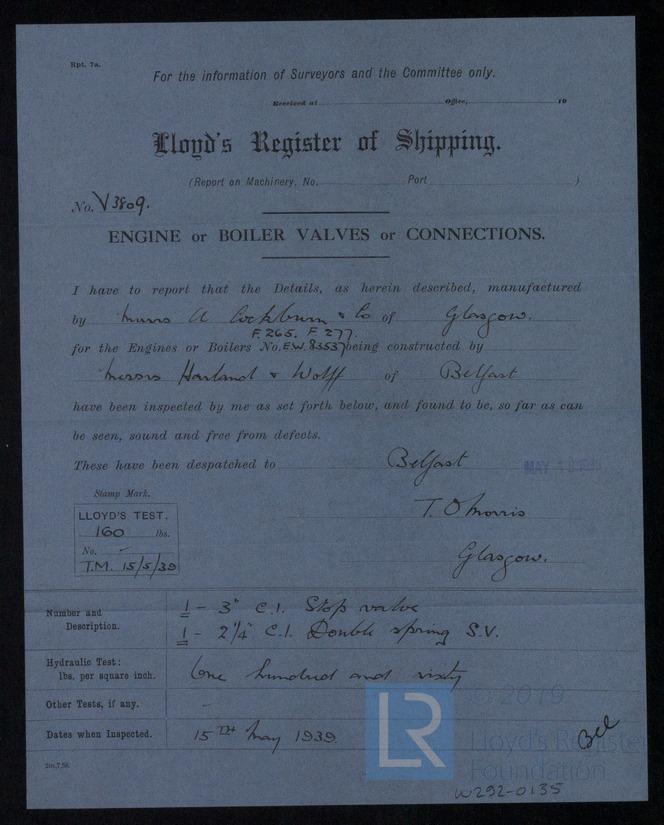 Rpt. 7a.
For the information of Surveyors and the Committee only.
Received at Office, 19
Lloyd's Register of Shipping.
(Report on Machinery, No. Port )
No. V3809.
ENGINE or BOILER VALVES or CONNECTIONS.
I have to report that the Details, as herein described, manufactured
by Messrs A Cockburn & Co of Glasgow.
F.265. F 277.
for the Engines or Boilers No. E.W. 83537 being constructed by
Messrs Harland & Wolff of Belfast
have been inspected by me as set forth below, and found to be, so far as can
be seen, sound and free from defects.
These have been despatched to Belfast MAY
Stamp Mark.
T. O Morris
LLOYD'S TEST.
160 lbs.
No. -
T.M. 15/5/39
Glasgow.
Number and Description. 1 - 3" C.I. Stop valve
1 - 2¼" C.I. Double spring S.V.
Hydraulic Test: lbs. per square inch. One hundred and sixty
Other Tests, if any. -
Dates when Inspected. 15TH May 1939.
LR
© 2019
Lloyd's Register
Foundation
2m,7,38.
W292-0135